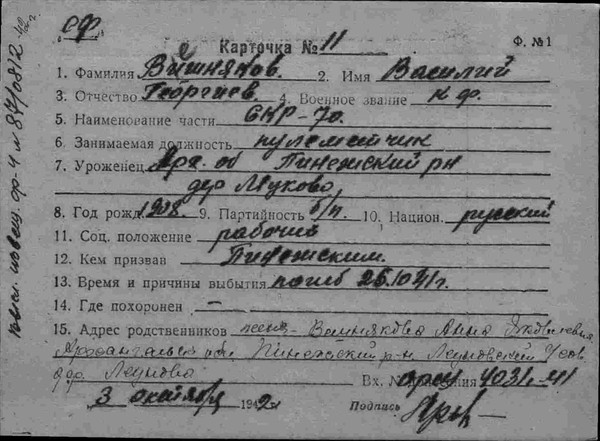 СФ
Карточка № 11
Ф. № 1
1. Фамилия Вишняков. 2. Имя Василий
3. Отчество Георгиев. 4. Военное звание к.ф.
5. Наименование части СКР-70.
6. Занимаемая должность пулеметчик
7. Уроженец Арх. об Пинежский рн
дер Леуково
8. Год рожд. 1908. 9. Партийность б/п. 10. Национ. русский
11. Соц. положение рабочий
12. Кем призван Пинежским.
13. Время и причины выбытия погиб 25.10.41г.
14. Где похоронен —
15. Адрес родственников жена Вишнякова Анна Яковлевна
Архангальск обл Пинежский р-н. Леуновский
дер Леуково
Вх. № 4031-41
3 октября 1942г
Подпись